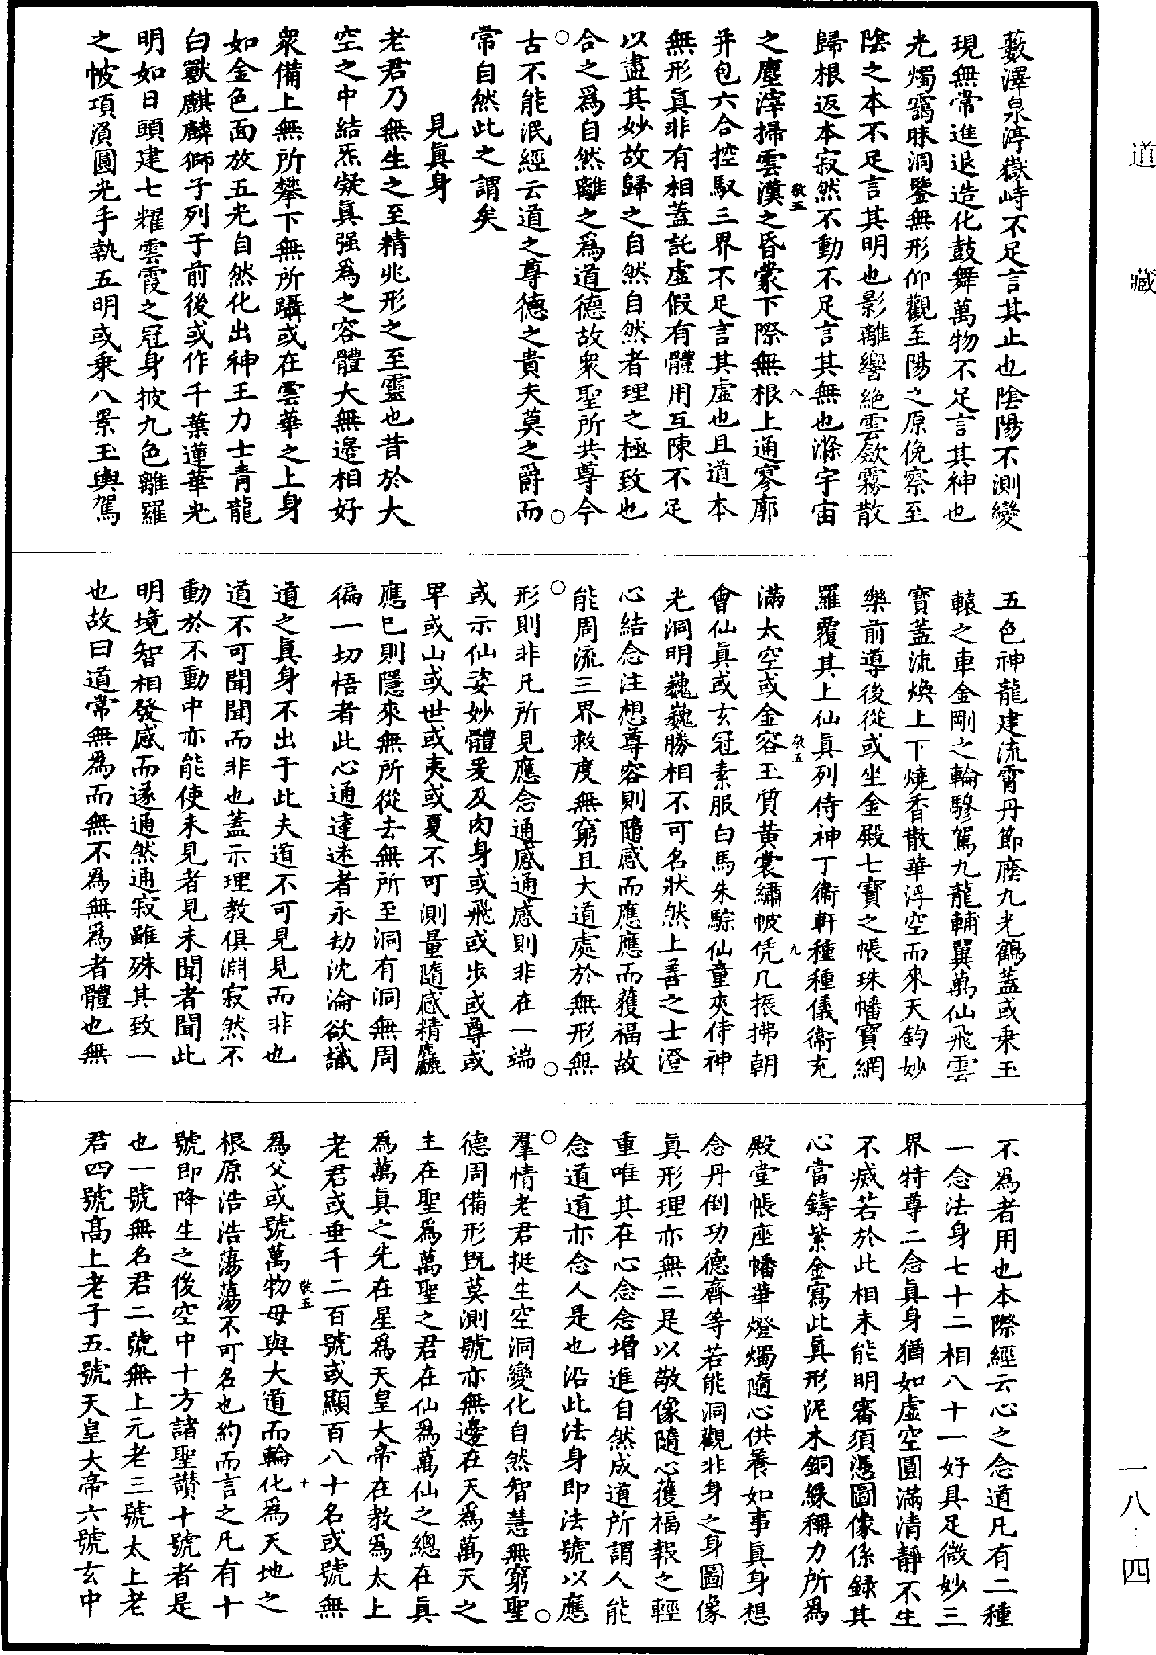 道藏
藪澤泉渟嶽峙不足言其止也陰陽不測變
現無常進退造化鼓舞萬物不足言其紳也
光燭窈昧洞鑒無形仰觀至陽之原俛察至
陰之本不足言其明也影離響絕雲歛霧散
歸根返本寂然不動不足言其無也滌宇宙
之塵滓掃雲漢之昏蒙下際無根上通寥廓
敬五
八
并包六合控馭三界不足言其虛也且道本
無形眞非有相蓋託虛假有體用互陳不足
以盡其妙故歸之自然自然者理之極致也
合之爲自然離之爲道德故衆聖所共尊今
古不能泯經云道之尊德之貴夫莫之爵而
常自然此之謂矣
見眞身
老君乃無生之至精兆形之至靈也昔於大
空之中結炁凝眞强爲之容體大無邊相好
衆備上無所攀下無所躡或在雲華之上身
如金色面放五光自然化出神王力士青龍
白獸麒麟獅子列于前後或作千葉蓮華光
明如日頭建七耀雲霞之冠身披九色離羅
之帔項湏圓光手執五明或乘八景玉輿駕
五色神龍建流霄丹節廕九光鶴蓋或乘玉
轅之車金剛之輪驂駕九龍輔翼萬仙飛雲
寶蓋流煥上下燒香散華浮空而來天鈞妙
樂前導後從或坐金殿七寶之帳珠幡寶網
羅覆其上仙眞列侍神丁衛軒種種儀衛充
敬五
九
滿太空或金容玉質黃裳繡帔凭几振拂朝
會仙眞或玄冠素服白馬朱騣仙童夾侍神
光洞明巍巍勝相不可名狀然上善之士澄
心結念注想尊容則隨感而應應而獲福故
能周流三界救度無窮且大道處於無形無
形則非凡所見應念通感通感則非在一端
或示仙姿妙體爰及肉身或飛或步或尊或
卑或山或世或夷或夏不可測量隨感精麤
應已則隱來無所從去無所至洞有洞無周
徧一切悟者此心通達迷者永劫沈淪欲識
道之眞身不出于此夫道不可見見而非也
道不可聞聞而非也蓋示理教俱淵寂然不
動於不動中亦能使未見者見未聞者聞此
明境智相發感而遂通然通寂雖殊其致一
也故曰道常無為而無不為無爲者體也無
不為者用也本際經云心之念道凡有二種
一念法身七十二相八十一好具足微妙三
界特尊二念眞身猶如虛空圓滿清靜不生
不滅若於此相未能明審須憑圖像係録其
心當鑄紫金寫此眞形泥木銅綵稱力所爲
殿堂帳座幡華燈燭隨心供養如事眞身想
念丹倒功德齊等若能洞觀非身之身圖像
眞形理亦無二是以敬像隨心獲福報之輕
重唯其在心念念增進自然成道所謂人能
念道道亦念人是也沿此法身即法號以應
羣情老君挺生空洞變化自然智慧無窮聖
德周備形既莫測號亦無邊在天爲萬天之
主在聖爲萬聖之君在仙爲萬仙之總在眞
爲萬眞之先在星爲天皇大帝在教爲太上
老君或垂千二百號或顯百八十名或號無
敬五
十
爲父或號萬物母與大道而輪化爲天地之
根原浩浩蕩蕩不可名也約而言之凡有十
號即降生之後空中十方諸聖讚十號者是
也一號無名君二號無上元老三號太上老
君四號高上老子五號天皇大帝六號玄中
一八
四